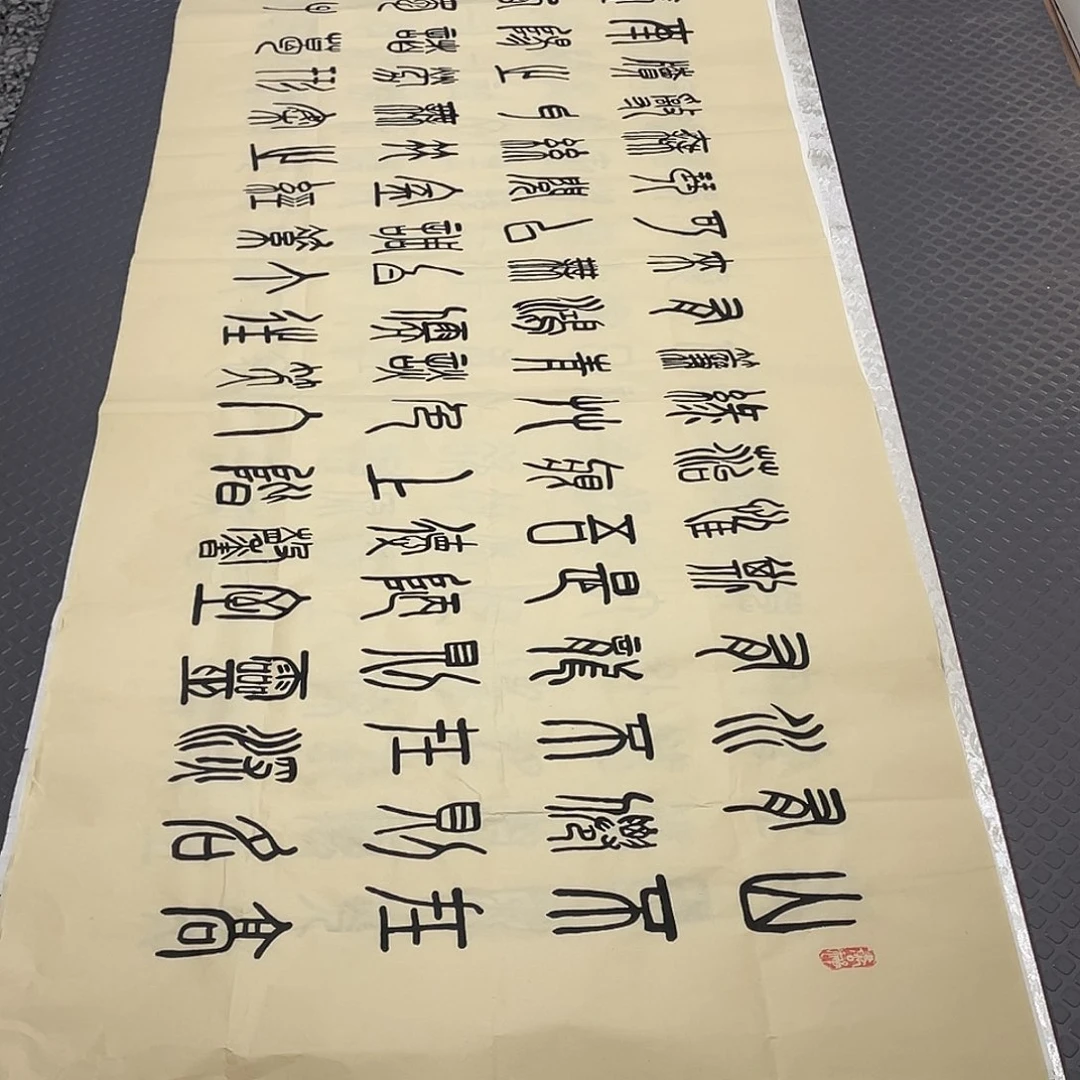 山不在高
有僊則名
水不在深
有龍則靈
斯是陋室
惟吾德馨
苔痕上階
綠艸色入
簾青談笑
有鴻儒往
來無白丁
可以調素
琴閱金經
無絲竹之
亂耳無案
牘之勞形
南陽諸葛